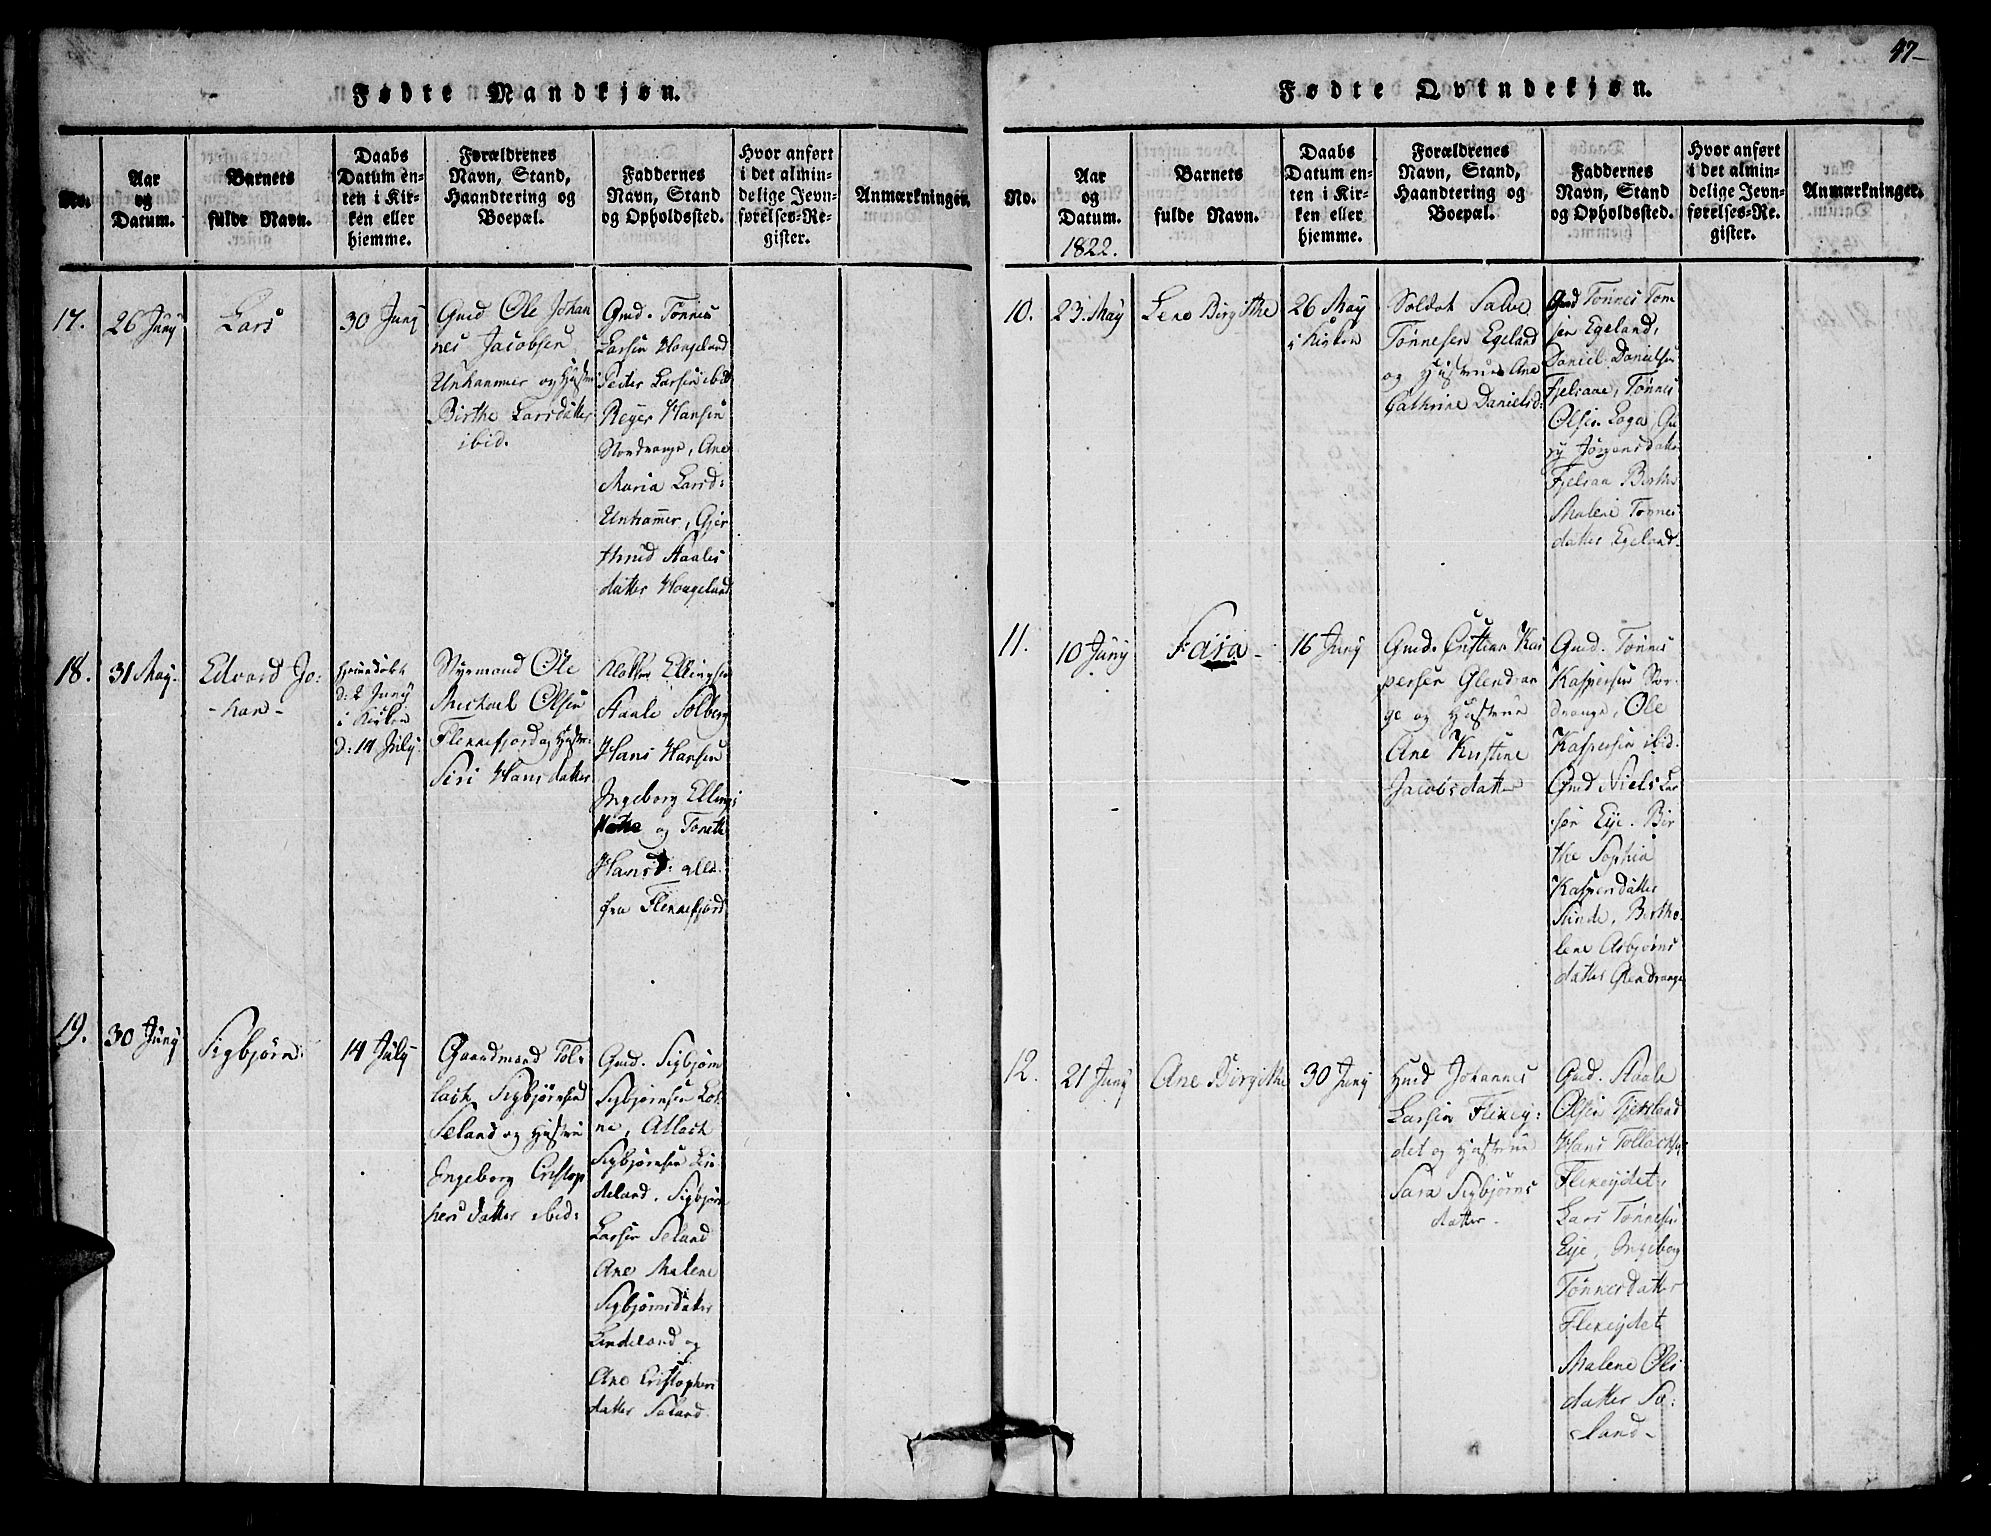 47-
Fødte Mandkjøn.
No.
Aar
og
Datum.
Barnets
fulde Navn.
Daabs
Datum en-
ten i Kir-
ken eller
hjemme.
Forældrenes
Navn, Stand,
Haandtering og
Boepæl.
Faddernes
Navn, Stand
og Opholdssted.
Hvor anført
i det almin-
delige Jevn-
førelses-Re-
gister.
Anmærkninger.
17.
26 Juny
Lars
30 Juny
Gmd Ole Johan
nes Jacobsen
Unhammer og Hustru
Birthe Larsdatter
ibid.
Gmd. Tønnes
Larsen Haugeland
Peder Larsen ibid
Reyer Hansen
Nordrange, Ane
Maria Larsd:
Unhamer, Gjer
thrud Staales
datter Haugeland
18.
31 May.
Edvard Jo:
-han-
Hjemmedøbt
d: 2 Juny
i Kirken
d: 14 July.
Styrmand Ole
Michael Olsen
Flekkefjord og Hustru
Siri Hansdatter
Klokker Ellingsen
Staale Solberg
Hans Hansen
Ingeborg Ellings
og Tonette
Hansd: alle
fra Flekkefjord
19.
30 Juny
Sigbjørn:
14 July
Gaardmand Tol-
lach Sigbjørnsen
Seland og Hustru
Ingeborg Cristop
hers datter ibid:
Gmd. Sigbjørn
Sigbjørnsen Lof
ne, Atlach
Sigbjørnsen Lin
deland, Sigbjørn
Larsen Seland
Ane Malene
Sigbjørnsdatter
Lindeland og
Ane Cristophers
datter Seland.
Fødte Qvindekjøn.
No.
Aar
og
Datum.
1822.
Barnets
fulde Navn.
Daabs
Datum en-
ten i Kir-
ken eller
hjemme.
Forældrenes
Navn, Stand,
Haandtering og
Boepæl.
Faddernes
Navn, Stand
og Opholdssted.
Hvor anført
i det almin-
delige Jevn-
førelses-Re-
gister.
Anmærkninger.
10.
23. May
Lene Birgithe
26 May
i Kirken
Soldat Salve
Tønnesen Egeland
og Hustrue Ane
Cathrine Danielsd:
Gmd Tønnes Tøn
sen Egeland,
Daniel Danielsen
Fjelsaae, Tønnes
Olsen Loga, Gu
ry Jørgensdatter
Fjelsaa Birthe
Malene Tønnes
datter Egeland.
11.
10 Juny
Sara-
16 Juny
Gmd. Cristian Kas
persen Glendran
ge og Hustrue
Ane Kirstine
Jacobsdatter
Gmd. Tønnes
Kaspersen Nor-
drange, Ole
Kaspersen ibid.
Gmd Niels Lar
sen Eye. Bir
the Sophia
Kaspersdatter
Sunde, Berthe
lene Asbjørns
datter Glendrange
12.
21 Juny
Ane Birgithe
30 Juny
Hmd Johannes
Larsen Flikey:
det og Hustrue
Sara Sigbjørns
datter.
Gmd. Staale
Olsen Tjersland
Hans Tollachsen
Flikeydet,
Lars Tønnesen
Eye, Ingeborg
Tønnesdatter
Flikeydet
Malene Ols
datter Se:
land-